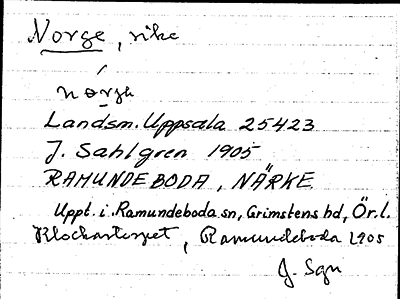 Norge, rike
norge
Landsm. Uppsala 25423
J. Sahlgren 1905
RAMUNDEBODA, NÄRKE
Uppt. i. Ramundeboda sn, Grimstens hd, Ör. l.
Klockartorpet, Ramundeboda 1905
J. Sgn